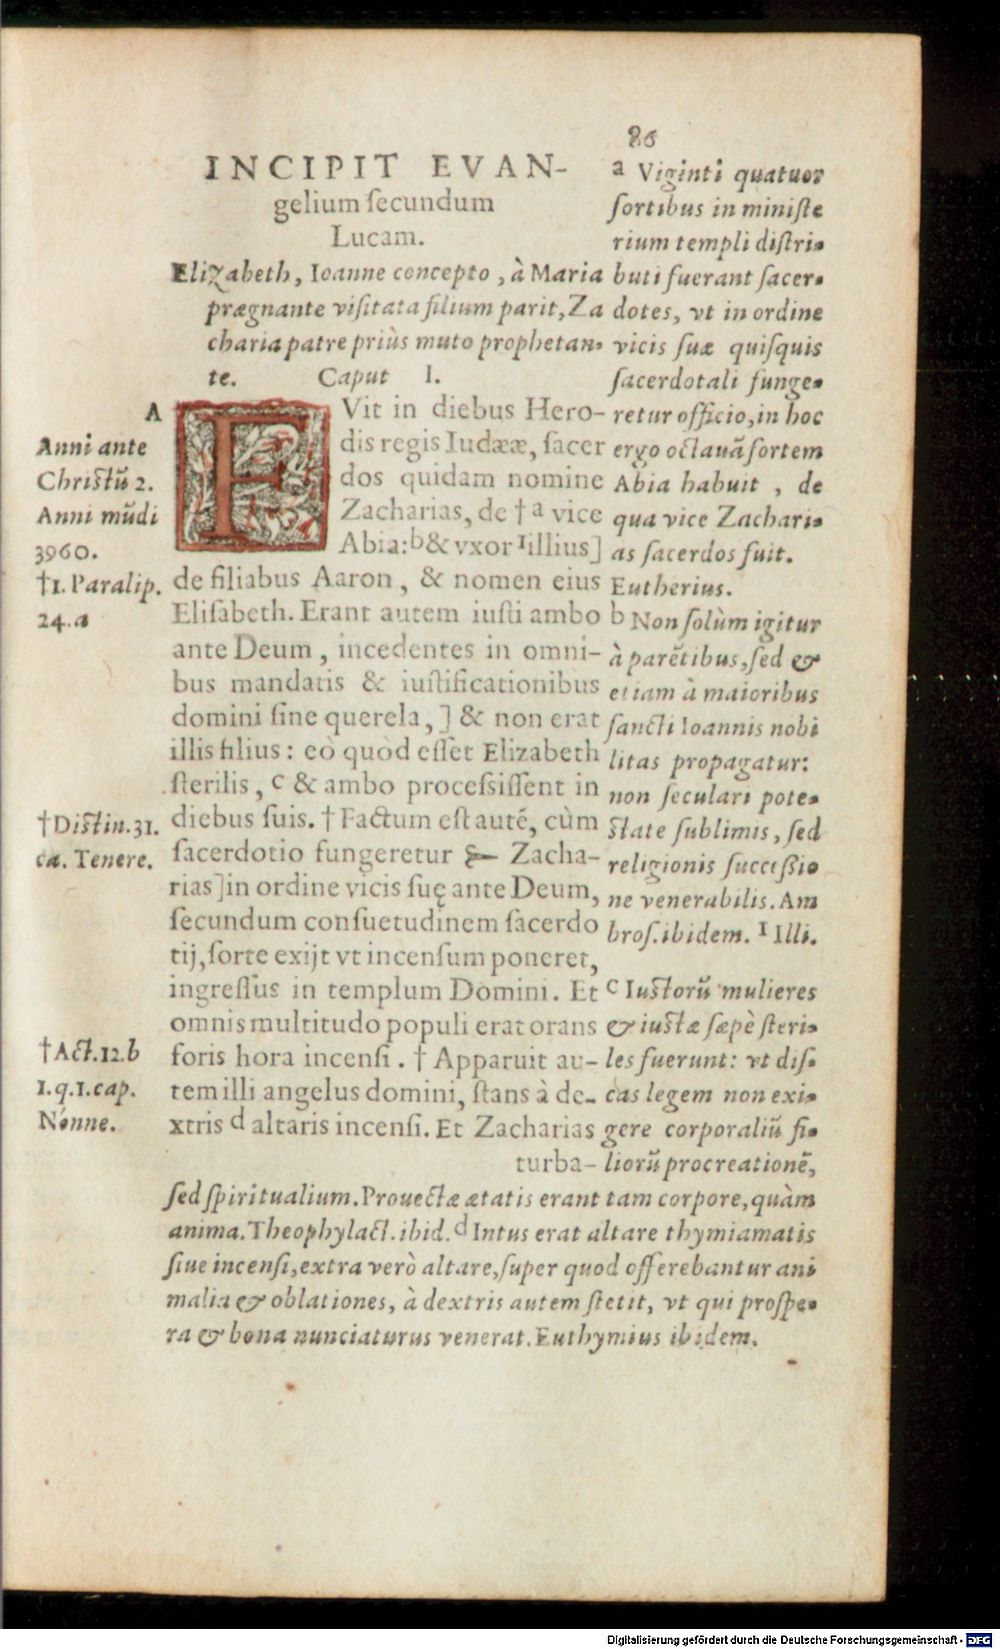 86
INCIPIT EVAN-
gelium ſecundum
Lucam.
Elizabeth, Ioanne concepto, à Maria
prægnante viſitata filium parit, Za
charia patre priùs muto prophetan-
te. Caput I.
A
FVit in diebus Hero-
dis regis Iudææ, ſacer
dos quidam nomine
Zacharias, de † a vice
Abia: b & vxor 1 illius]
de filiabus Aaron, & nomen eius
Eliſabeth. Erant autem iuſti ambo
ante Deum, incedentes in omni-
bus mandatis & iuſtificationibus
domini ſine querela,] & non erat
illis filius: eò quòd eſſet Elizabeth
ſterilis, c & ambo proceſsiſſent in
diebus ſuis. † Factum eſt autẽ, cùm
ſacerdotio fungeretur Zacha-
rias] in ordine vicis ſuę ante Deum,
ſecundum conſuetudinem ſacerdo
tij, ſorte exijt vt incenſum poneret,
ingreſſus in templum Domini. Et
omnis multitudo populi erat orans
foris hora incenſi. † Apparuit au-
tem illi angelus domini, ſtans à de-
xtris d altaris incenſi. Et Zacharias
turba-
Anni ante
Chriſtũ 2.
Anni mũdi
3960.
†1. Paralip.
24.a
†Diſtin.31.
ca. Tenere.
†Act.12.b
1.q.1.cap.
Nónne.
a Viginti quatuor
ſortibus in miniſte
rium templi diſtri-
buti fuerant ſacer-
dotes, vt in ordine
vicis ſuæ quiſquis
ſacerdotali funge-
retur officio, in hoc
ergo octauã ſortem
Abia habuit, de
qua vice Zachari-
as ſacerdos fuit.
Eutherius.
b Non ſolùm igitur
à parẽtibus, ſed &
etiam à maioribus
ſancti Ioannis nobi
litas propagatur:
non ſeculari pote-
ſtate ſublimis, ſed
religionis ſucceſsio
ne venerabilis. Am
broſ. ibidem. 1 Illi.
c Iuſtorũ mulieres
& iuſtæ ſæpè ſteri-
les fuerunt: vt diſ-
cas legem non exi-
gere corporaliũ fi-
liorũ procreationẽ,
ſed ſpiritualium. Prouectæ ætatis erant tam corpore, quàm
anima. Theophylact. ibid. d Intus erat altare thymiamatis
ſiue incenſi, extra verò altare, ſuper quod offerebantur ani
malia & oblationes, à dextris autem ſtetit, vt qui proſpe-
ra & bona nunciaturus venerat. Euthymius ibidem.
Digitalisierung gefördert durch die Deutsche Forschungsgemeinschaft - DFG